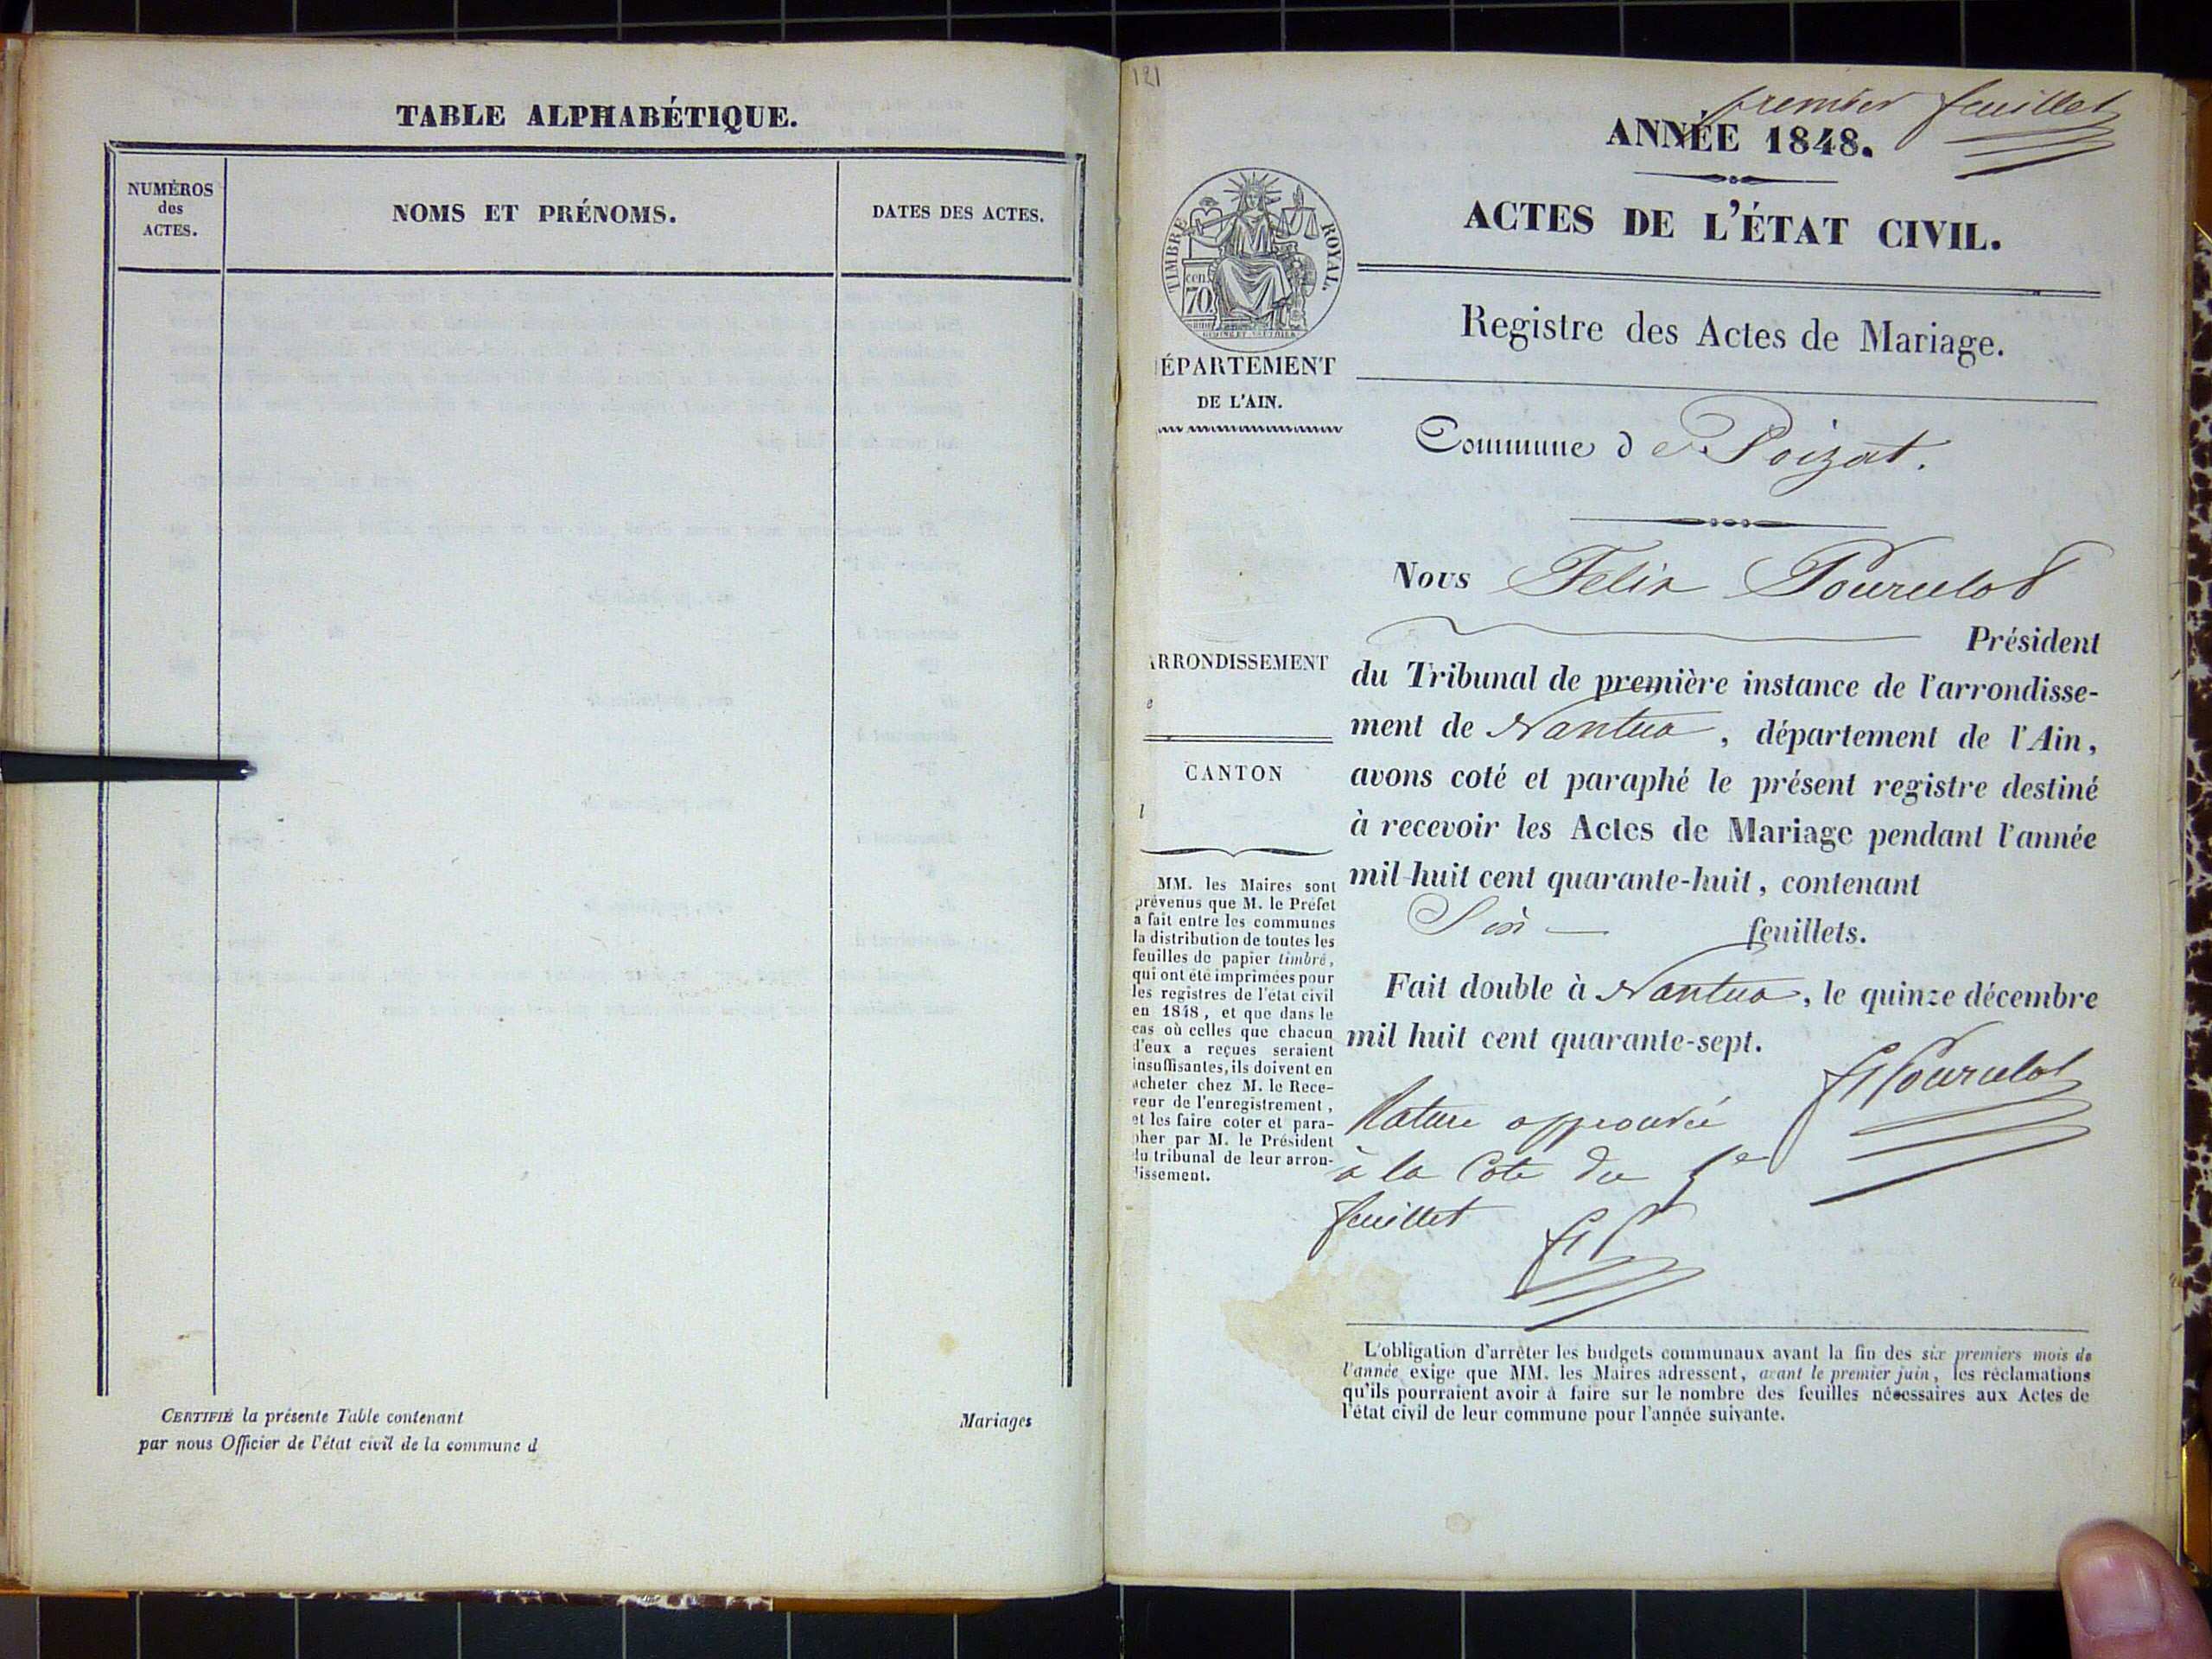 TABLE ALPHABÉTIQUE.
NUMÉROS
des
ACTES.
NOMS ET PRÉNOMS.
DATES DES ACTES.
CERTIFIÉ la présente Table contenant Mariages
par nous Officier de l'état civil de la commune d
121
premier feuillet
ANNÉE 1848.
ACTES DE L'ÉTAT CIVIL.
TIMBRE ROYAL.
cen.
70
Registre des Actes de Mariage.
ÉPARTEMENT
DE L'AIN.
Commune de Poizat.
Nous Felix Pourcelot
Président
du Tribunal de première instance de l'arrondisse-
ment de Nantua, département de l'Ain,
avons coté et paraphé le présent registre destiné
à recevoir les Actes de Mariage pendant l'année
mil huit cent quarante-huit, contenant
Six feuillets.
Fait double à Nantua, le quinze décembre
mil huit cent quarante-sept.
Pourcelot
approuvée
à la Cote du
feuillet
RRONDISSEMENT
e
CANTON
l
MM. les Maires sont
prévenus que M. le Préfet
a fait entre les communes
la distribution de toutes les
feuilles de papier timbré,
qui ont été imprimées pour
les registres de l'état civil
en 1848, et que dans le
cas où celles que chacun
d'eux a reçues seraient
insuffisantes, ils doivent en
acheter chez M. le Rece-
veur de l'enregistrement,
et les faire coter et para-
pher par M. le Président
du tribunal de leur arron-
dissement.
L'obligation d'arrêter les budgets communaux avant la fin des six premiers mois de
l'année exige que MM. les Maires adressent, avant le premier juin, les réclamations
qu'ils pourraient avoir à faire sur le nombre des feuilles nécessaires aux Actes de
l'état civil de leur commune pour l'année suivante.